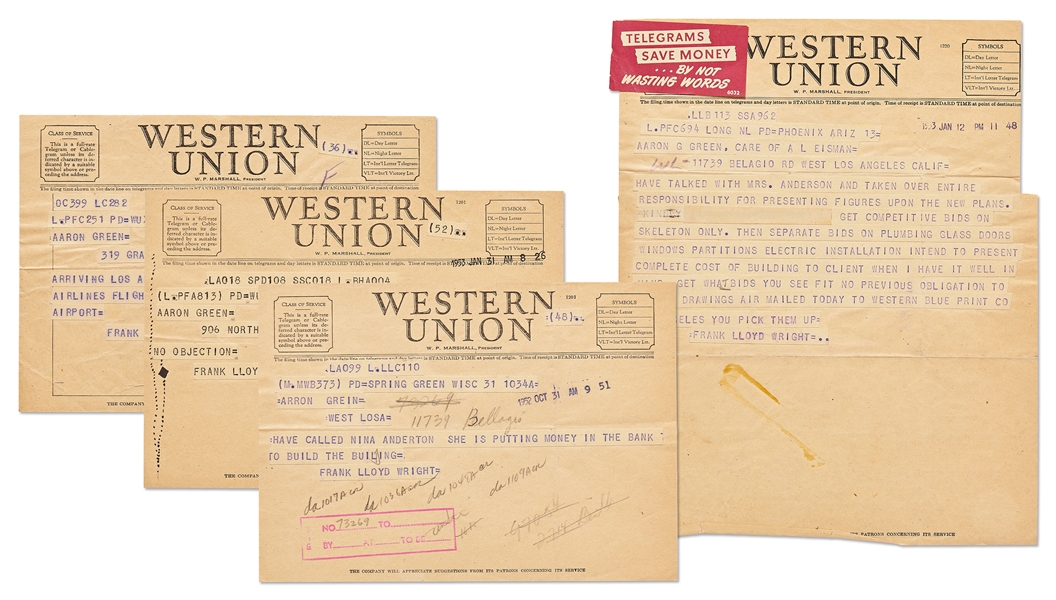 CLASS OF SERVICE
This is a full-rate
Telegram or Cable-
gram unless its de-
ferred character is in-
dicated by a suitable
symbol above or pre-
ceding the address.
WESTERN
UNION
W. P. MARSHALL, PRESIDENT
(36)
SYMBOLS
DL=Day Letter
NL=Night Letter
LT=Int'l Letter Telegram
VLT=Int'l Victory Ltr.
The filing time shown in the date line on telegrams and day letters is STANDARD TIME at point of origin. Time of receipt is STANDARD TIME at point of destination
OC399 LC282
L.PFC251 PD=WUX
AARON GREEN=
319 GRA
ARRIVING LOS A
AIRLINES FLIGH
AIRPORT=
FRANK
THE COMPANY
CLASS OF SERVICE
This is a full-rate
Telegram or Cable-
gram unless its de-
ferred character is in-
dicated by a suitable
symbol above or pre-
ceding the address.
WESTERN
UNION
W. P. MARSHALL, PRESIDENT
1201
(52)
SYMBOLS
DL=Day Letter
NL=Night Letter
LT=Int'l Letter Telegram
VLT=Int'l Victory Ltr.
The filing time shown in the date line on telegrams and day letters is STANDARD TIME at point of origin. Time of receipt is STANDARD TIME at point of destination
1953 JAN 31 AM 8 26
.LA018 SPD108 SSC018 L.RHA004
(L.PFA813) PD=WU
AARON GREEN=
906 NORTH
NO OBJECTION=
FRANK LLOY
THE COM
CLASS OF SERVICE
This is a full-rate
Telegram or Cable-
gram unless its de-
ferred character is in-
dicated by a suitable
symbol above or pre-
ceding the address.
WESTERN
UNION
W. P. MARSHALL, PRESIDENT
1201
(48)
SYMBOLS
DL=Day Letter
NL=Night Letter
LT=Int'l Letter Telegram
VLT=Int'l Victory Ltr.
The filing time shown in the date line on telegrams and day letters is STANDARD TIME at point of origin. Time of receipt is STANDARD TIME at point of destination
.LA099 L.LLC110
(M.MWB373) PD=SPRING GREEN WISC 31 1034A=
1952 OCT 31 AM 9 51
ARRON GREIN= 73269
WEST LOSA= 11739 Bellagio
HAVE CALLED NINA ANDERTON SHE IS PUTTING MONEY IN THE BANK
TO BUILD THE BUILING=
FRANK LLOYD WRIGHT=
da1017Acw da1036Acw da1049Acw da1109Acw
NO 73269 TO
BY AT TO BE
THE COMPANY WILL APPRECIATE SUGGESTIONS FROM ITS PATRONS CONCERNING ITS SERVICE
TELEGRAMS
SAVE MONEY
...BY NOT
WASTING WORDS
6032
WESTERN
UNION
W. P. MARSHALL, PRESIDENT
1220
SYMBOLS
DL=Day Letter
NL=Night Letter
LT=Int'l Letter Telegram
VLT=Int'l Victory Ltr.
The filing time shown in the date line on telegrams and day letters is STANDARD TIME at point of origin. Time of receipt is STANDARD TIME at point of destination
.LLB113 SSA962
1953 JAN 12 PM 11 48
L.PFC694 LONG NL PD=PHOENIX ARIZ 13=
AARON G GREEN, CARE OF A L EISMAN=
11739 BELAGIO RD WEST LOS ANGELES CALIF=
HAVE TALKED WITH MRS. ANDERSON AND TAKEN OVER ENTIRE
RESPONSIBILITY FOR PRESENTING FIGURES UPON THE NEW PLANS.
GET COMPETITIVE BIDS ON
SKELETON ONLY. THEN SEPARATE BIDS ON PLUMBING GLASS DOORS
WINDOWS PARTITIONS ELECTRIC INSTALLATION INTEND TO PRESENT
COMPLETE COST OF BUILDING TO CLIENT WHEN I HAVE IT WELL IN
GET WHATBIDS YOU SEE FIT NO PREVIOUS OBLIGATION TO
DRAWINGS AIR MAILED TODAY TO WESTERN BLUE PRINT CO
ELES YOU PICK THEM UP=
FRANK LLOYD WRIGHT=..
PATRONS CONCERNING ITS SERVICE